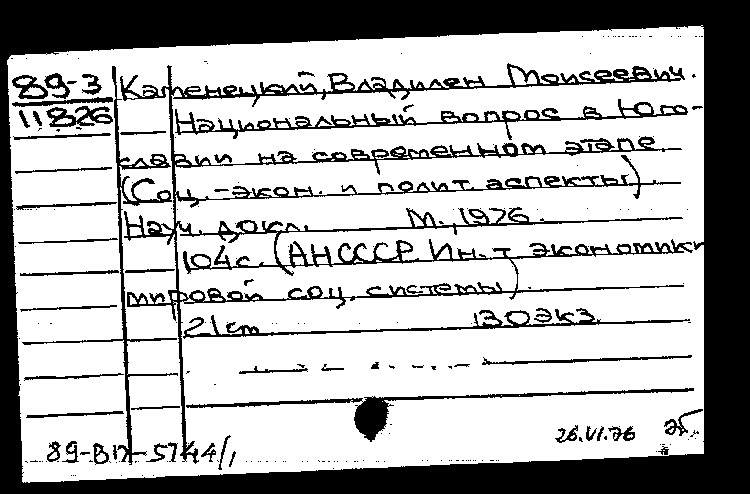 89-3 Каменецкий, Владилен Моисеевич.
11826 Национальный вопрос в Юго-
славии на современном этапе.
(Соц.-экон. и полит. аспекты).
Науч. докл. М., 1976.
104с. (АНСССР. Ин-т экономики
мировой соц. системы)
21cm 130экз.
89-ВП-5744/1 26.VI.76